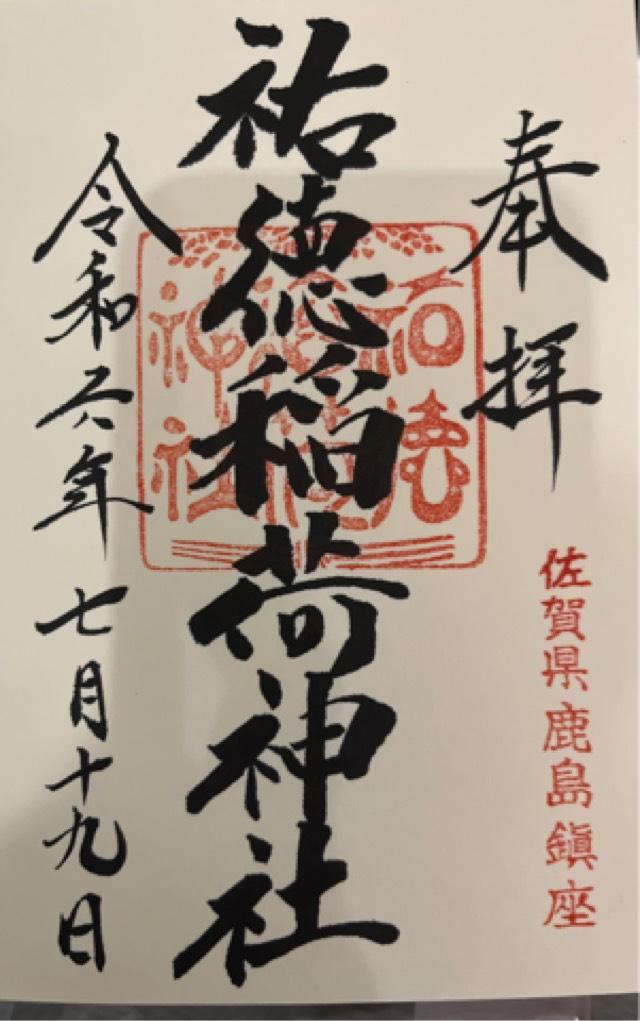 奉拝
佐賀県鹿島鎮座
祐徳稲荷神社
祐徳
稲荷
神社
令和六年七月十九日